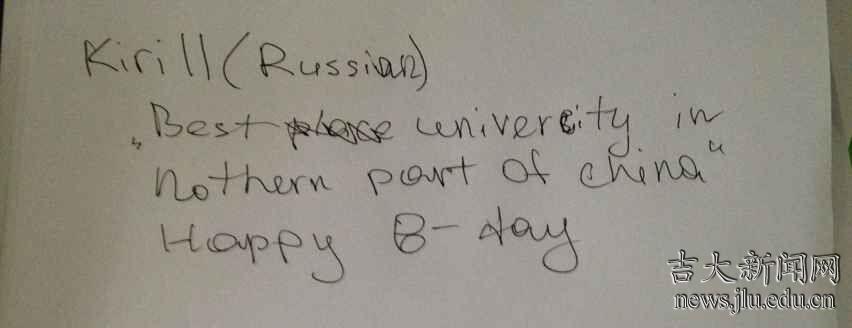 Kirill (Russian)
„Best univercity in
nothern part of china“
Happy B-day
吉大新闻网
news.jlu.edu.cn